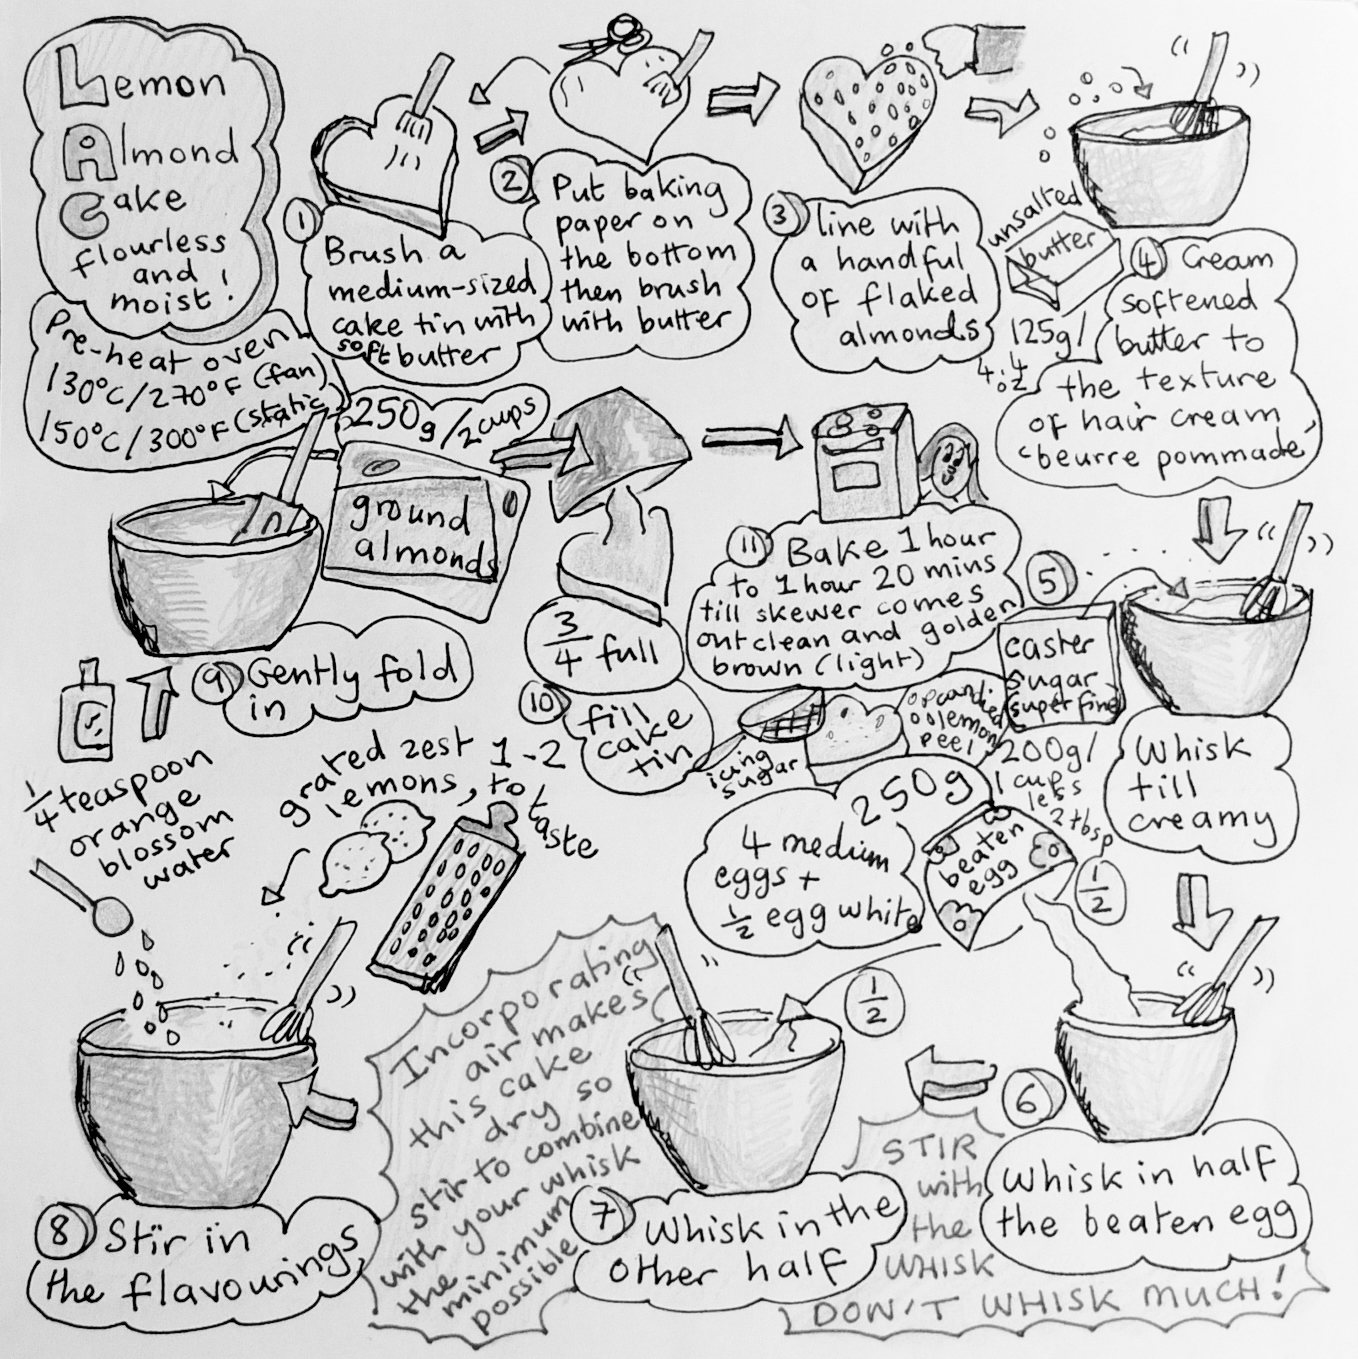 Lemon
Almond
Cake
flourless
and
moist!
Pre-heat oven
130°C/270°F (fan)
150°C/300°F (static)
1
Brush a
medium-sized
cake tin with
soft butter
2
Put baking
paper on
the bottom
then brush
with butter
3
line with
a handful
of flaked
almonds
unsalted
butter
125g/
4.4
oz
4
Cream
softened
butter to
the texture
of hair cream
'beurre pommade'
5
caster
sugar
superfine
200g/
1 cup
less
2 tbsp
Whisk
till
creamy
250g
4 medium
eggs +
1/2 egg white
beaten
egg
1/2
6
Whisk in half
the beaten egg
STIR
with
the
WHISK
DON'T WHISK MUCH!
1/2
7
Whisk in the
other half
Incorporating
air makes
this cake
dry so
stir to combine
with your whisk
the
minimum
possible
8
Stir in
the flavourings
1/4 teaspoon
orange
blossom
water
grated zest 1-2
lemons, to
taste
9
Gently fold
in
250g/2 cups
ground
almonds
3/4 full
10
fill
cake
tin
11
Bake 1 hour
to 1 hour 20 mins
till skewer comes
out clean and golden
brown (light)
icing
sugar
candi.
lemon
peel